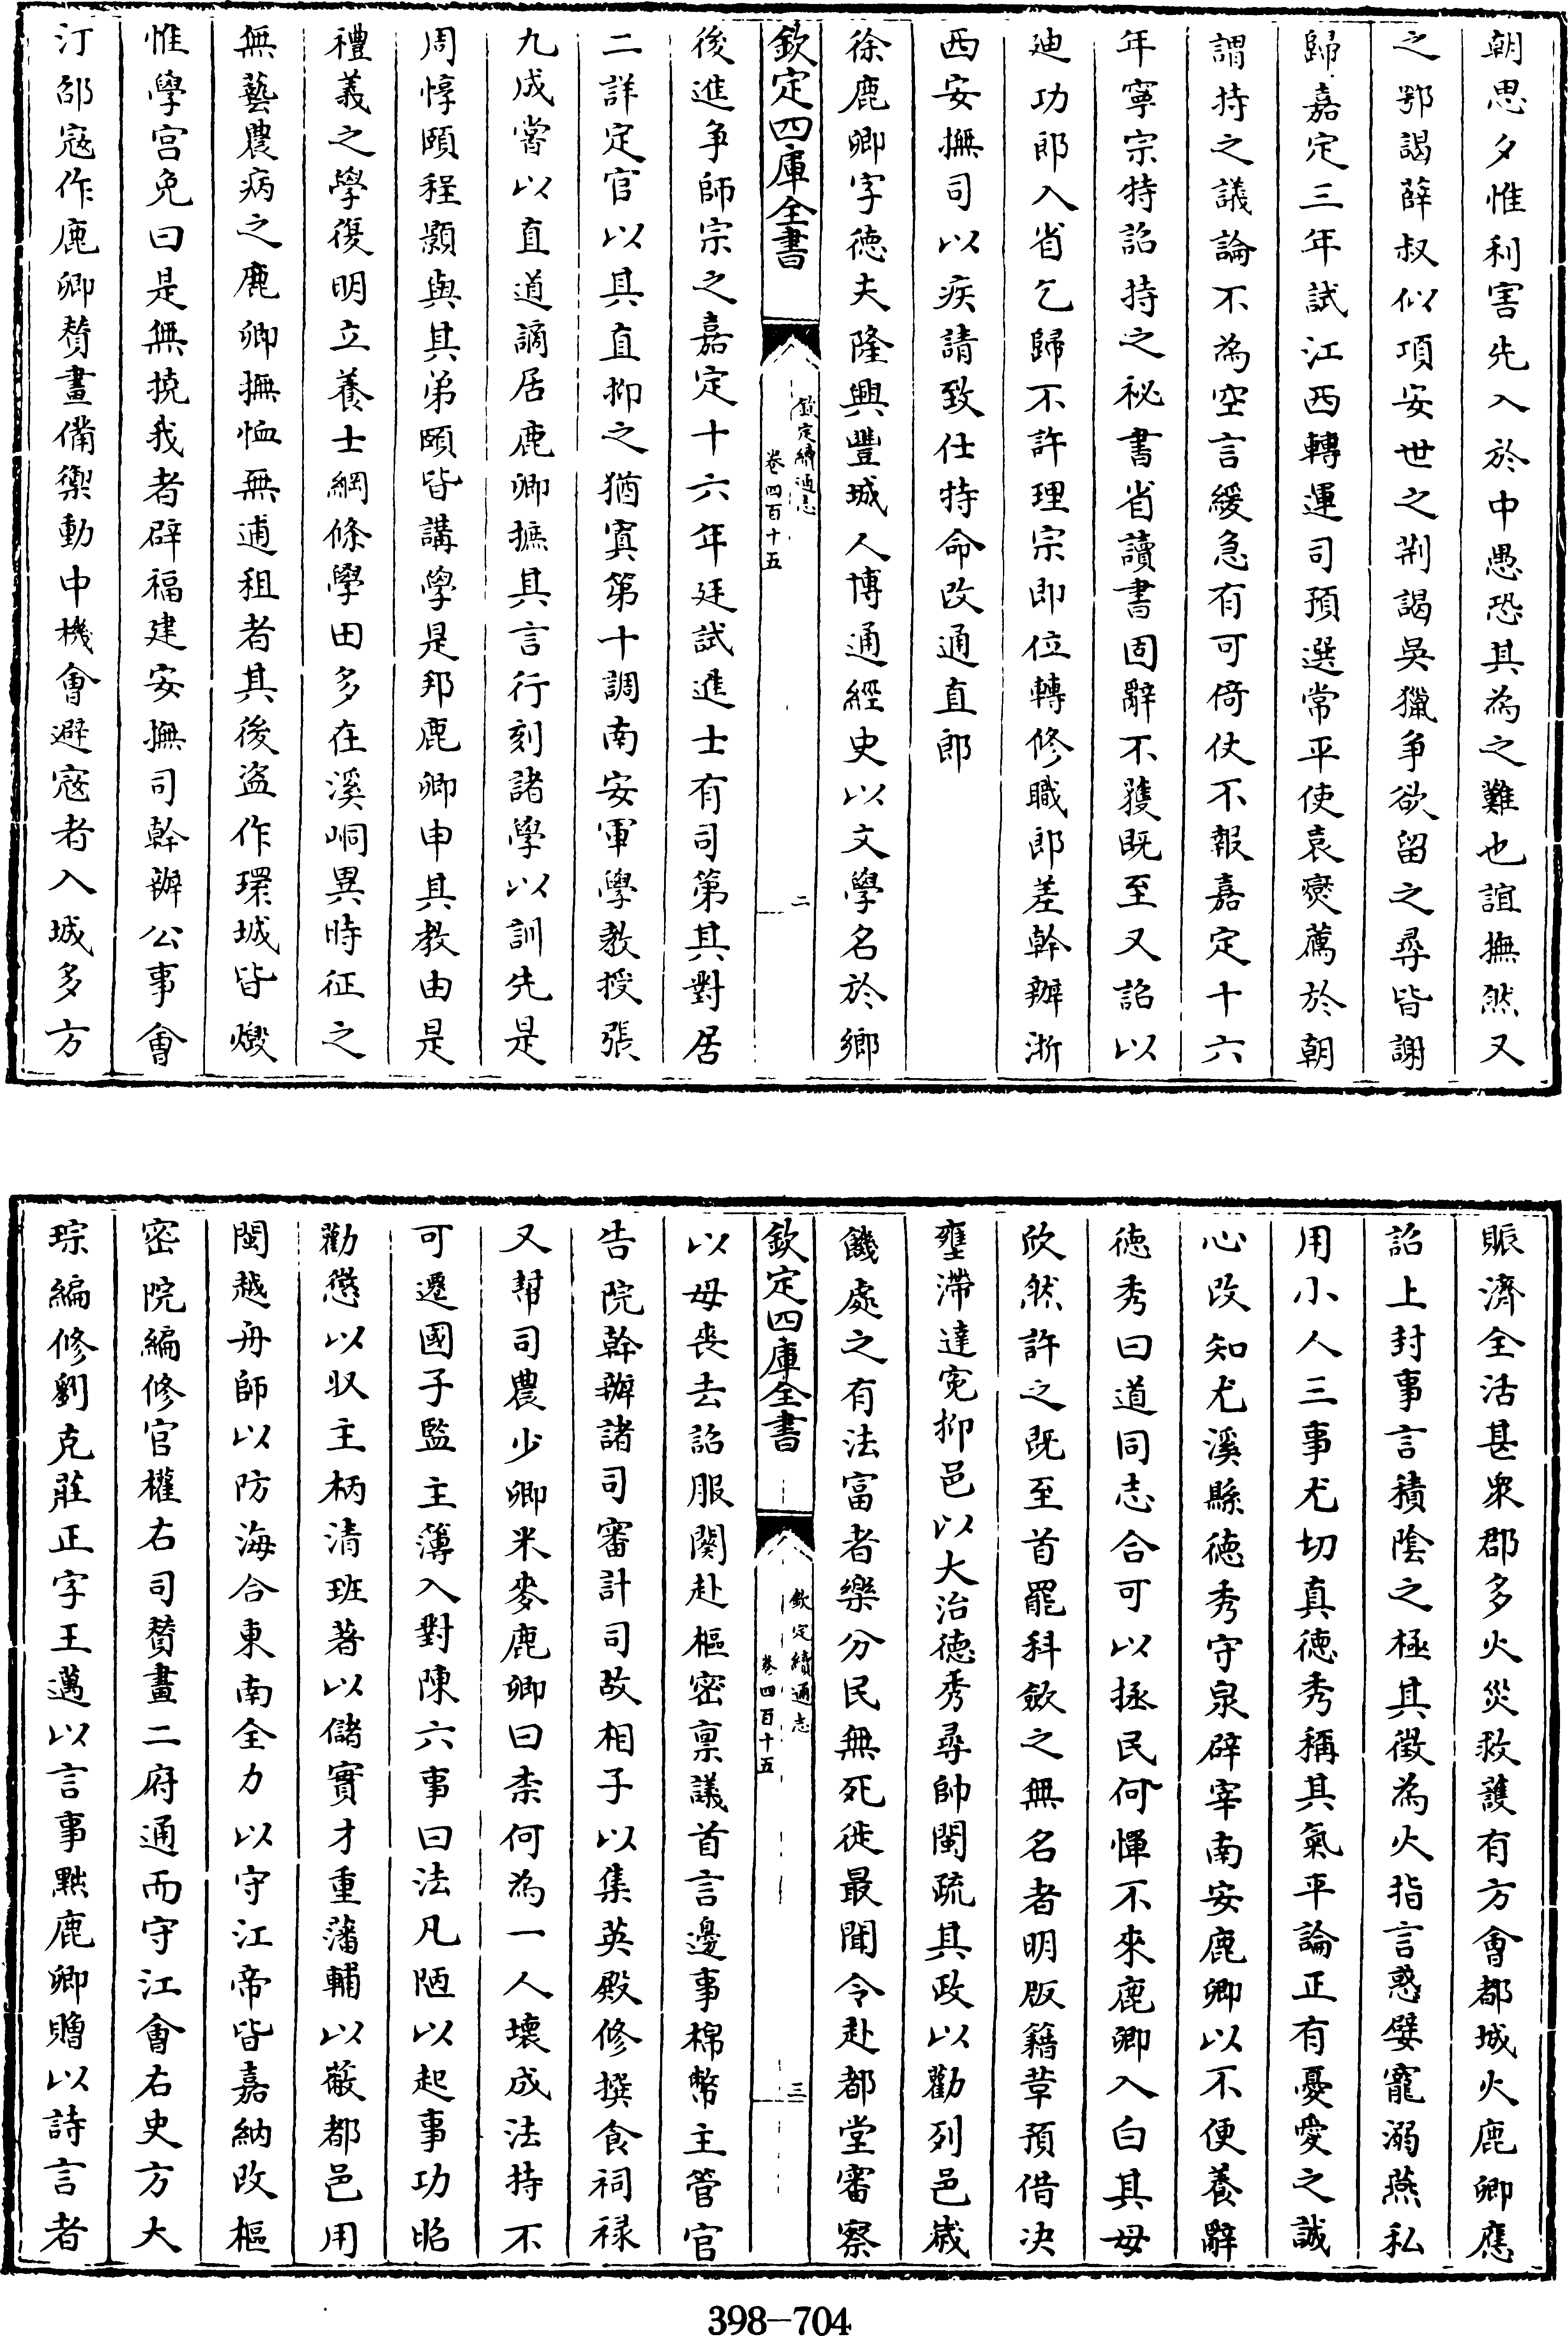 朝思夕惟利害先入於中愚恐其為之難也誼撫然又
之鄂謁薛叔似項安世之荆謁吳獵争欲留之尋皆謝
歸嘉定三年試江西轉運司預選常平使袁燮薦於朝
謂持之議論不為空言緩急有可倚仗不報嘉定十六
年寧宗特詔持之秘書省讀書固辭不獲既至又詔以
廸功郎入省乞歸不許理宗即位轉修職郎差幹辦浙
西安撫司以疾請致仕特命改通直郎
徐鹿卿字徳夫隆興豐城人博通經史以文學名於鄉
欽定四庫全書
欽定續通志
卷四百十五
二
後進争師宗之嘉定十六年廷試進士有司第其對居
二詳定官以其直抑之猶寘第十調南安軍學教授張
九成嘗以直道謫居鹿卿摭其言行刻諸學以訓先是
周惇頤程顥與其弟頤皆講學是邦鹿卿申其教由是
禮義之學復明立養士綱條學田多在溪峒異時征之
無藝農病之鹿卿撫恤無逋租者其後盗作環城皆燬
惟學宫免曰是無撓我者辟福建安撫司幹辦公事會
汀邵宼作鹿卿賛畫備禦動中機會避宼者入城多方
賑濟全活甚衆郡多火災救護有方會都城火鹿卿應
詔上封事言積隂之極其徵為火指言惑嬖寵溺燕私
用小人三事尤切真徳秀稱其氣平論正有憂愛之誠
心改知尤溪縣徳秀守泉辟宰南安鹿卿以不便養辭
徳秀曰道同志合可以拯民何憚不來鹿卿入白其母
欣然許之既至首罷科斂之無名者明版籍革預借决
壅滯達寃抑邑以大治徳秀尋帥閩疏其政以勸列邑歲
饑處之有法富者樂分民無死徙最聞令赴都堂審察
欽定四庫全書
欽定續通志
卷四百十五
三
以母喪去詔服闋赴樞密稟議首言邊事棉幣主管官
告院幹辦諸司審計司故相子以集英殿修撰食祠禄
又幫司農少卿米麥鹿卿曰柰何為一人壞成法持不
可遷國子監主薄入對陳六事曰法凡陋以起事功昭
勸懲以収主柄清班著以儲實才重藩輔以蔽都邑用
閩越舟師以防海合東南全力以守江帝皆嘉納改樞
密院編修官權右司賛畫二府通而守江會右史方大
琮編修劉克莊正字王邁以言事黜鹿卿贈以詩言者
398-704